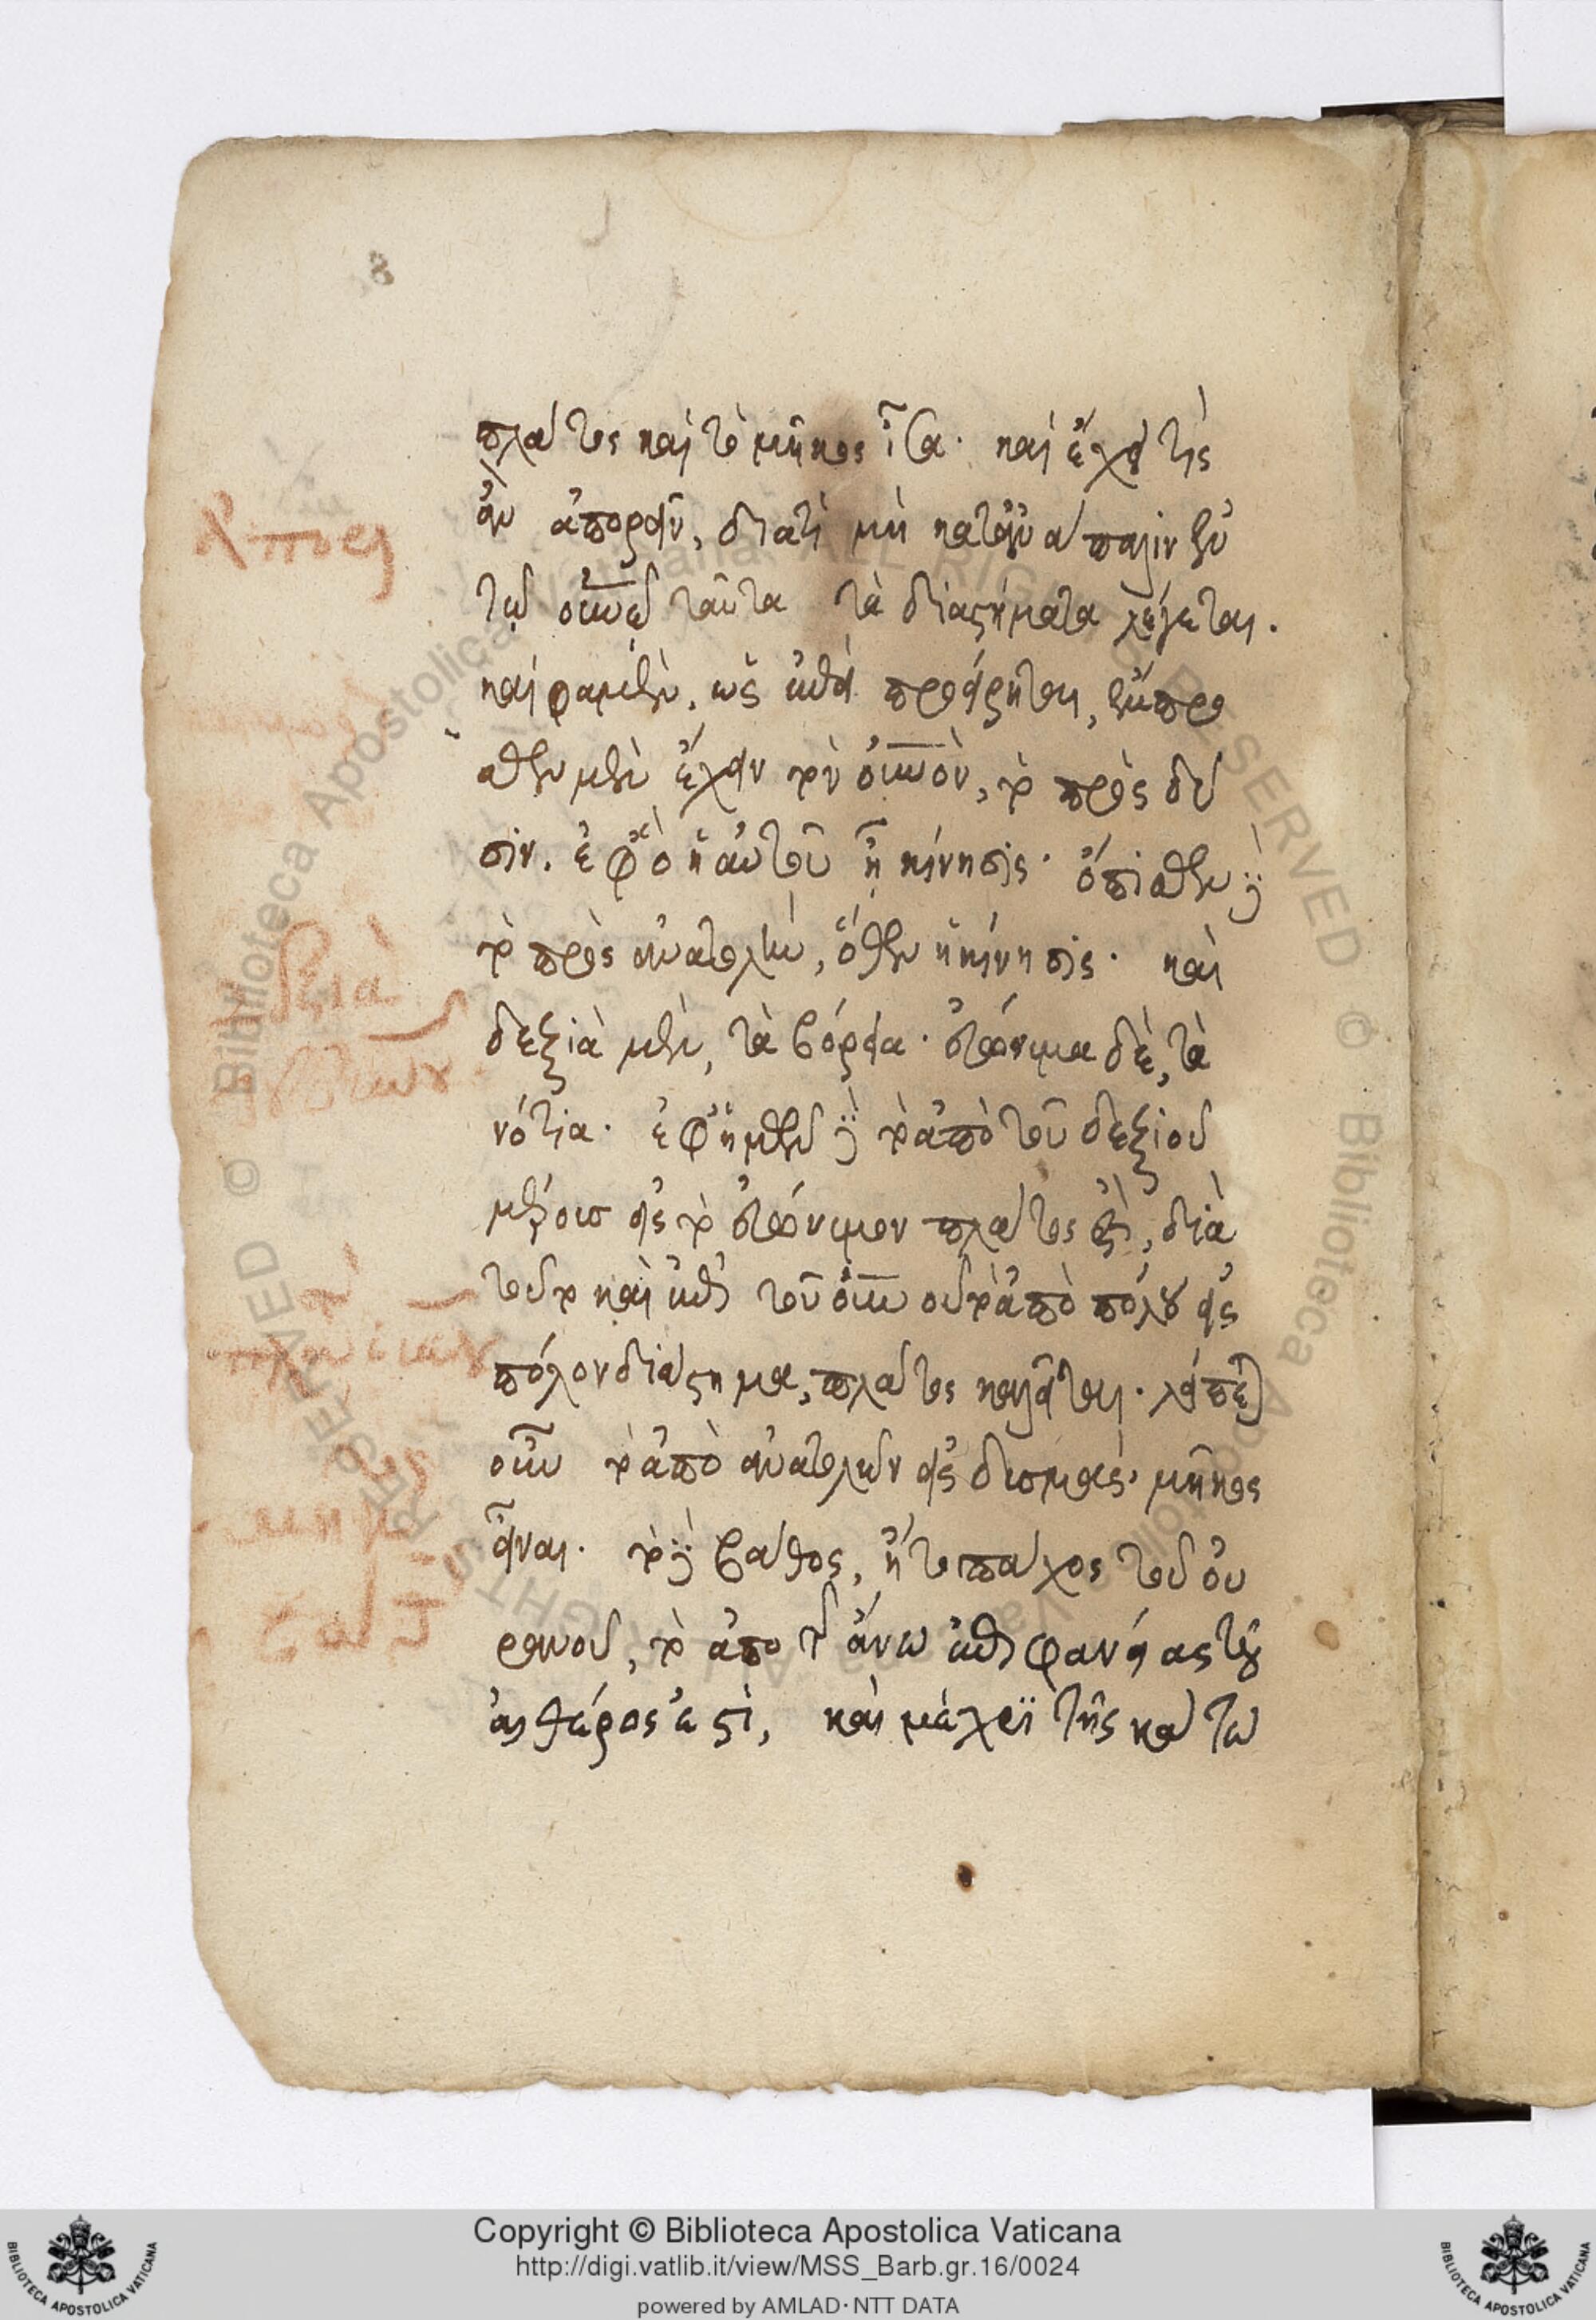 πλάτος καὶ τὸ μῆκος ἴσα. καὶ ἔχει τις
ἂν ἀπορεῖν, διατὶ μὴ κατ' ἀνάπαλιν ἐν
τῷ οὐνῷ ταῦτα τὰ διαστήματα λέγεται.
καὶ φαμὲν, ὡς ἐπεὶ προείρηται, ἔμπρο
σθεν μὲν ἔχειν τὸν οὐνὸν, τὸ πρὸς δύ
σιν. ἐφ' ὃ ἡ αὐτοῦ ἡ κίνησις. ὄπισθεν δὲ
τὸ πρὸς ἀνατολὴν, ὅθεν ἡ κίνησις. καὶ
δεξιὰ μὲν, τὰ βόρεια. εὐώνυμα δὲ, τὰ
νότια. ἐφ' ἡμῶν δὲ τὸ ἀπὸ τοῦ δεξιοῦ
μέρους εἰς τὸ εὐώνυμον πλάτος ἐστὶ, διὰ
τοῦτο καὶ ἐπὶ τοῦ οὐνοῦ τὸ ἀπὸ πόλου εἰς
πόλον διάστημα, πλάτος καλεῖται. λείπεται
οὖν τὸ ἀπὸ ἀνατολῶν εἰς δυσμὰς, μῆκος
εἶναι. τὸ δὲ βάθος, ἤτοι πάχος τοῦ οὐ
ρανοῦ, τὸ ἀπὸ τῆς ἄνω ἐπιφανείας τοῦ
αἰθέρος ἐστὶ, καὶ μέχρι τῆς κάτω
Copyright © Biblioteca Apostolica Vaticana
http://digi.vatlib.it/view/MSS_Barb.gr.16/0024
powered by AMLAD·NTT DATA